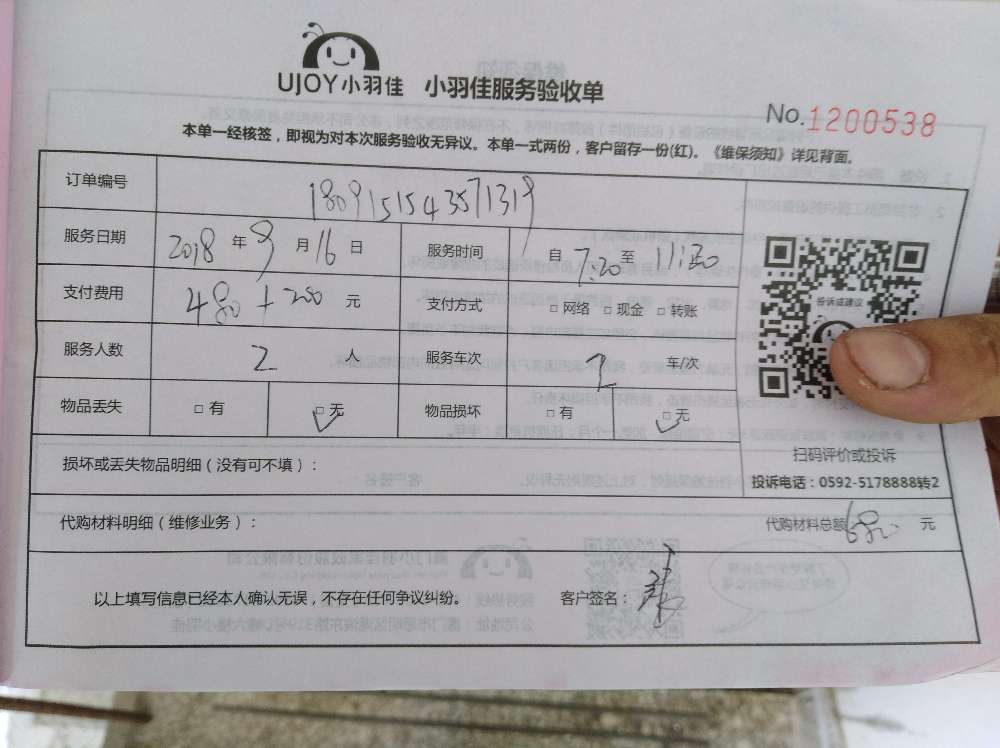 UJOY小羽佳 小羽佳服务验收单
No.1200538
本单一经核签，即视为对本次服务验收无异议。本单一式两份，客户留存一份(红)。《维保须知》详见背面。
订单编号 1809151543571319
服务日期 2018 年 9 月 16 日 服务时间 自 7:20 至 11:20
支付费用 480+200 元 支付方式 □ 网络 □ 现金 □ 转账
投诉或建议
服务人数 2 人 服务车次 车/次
物品丢失 □ 有 □ 无 物品损坏 □ 有 □ 无
扫码评价或投诉
损坏或丢失物品明细（没有可不填）：
投诉电话：0592-5178888转2
代购材料明细（维修业务）： 代购材料总额 680 元
以上填写信息已经本人确认无误，不存在任何争议纠纷。 客户签名：